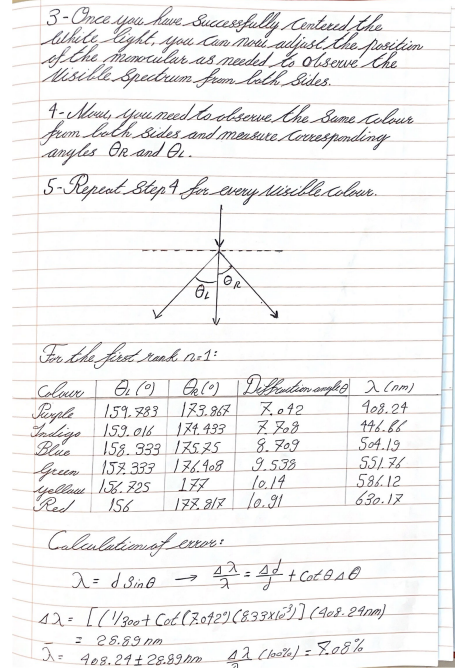 3-Once you have successfully centered the
white light, you can now adjust the position
of the monocular as needed to observe the
visible spectrum from both sides.
4-Now, you need to observe the same colour
from both sides and measure corresponding
angles θR and θL.
5-Repeat step 4 for every visible colour.
θL θR
For the first rank n=1:
Colour θL (°) θR (°) Diffraction angle θ λ (nm)
Purple 159.783 173.867 7.042 408.24
Indigo 159.016 174.433 7.708 446.86
Blue 158.333 175.75 8.709 504.19
Green 157.333 176.408 9.538 551.76
Yellow 156.725 177 10.14 586.12
Red 156 177.817 10.91 630.17
Calculation of error:
λ = d Sinθ → Δλ/λ = Δd/d + Cotθ Δθ
Δλ = [(1/300 + Cot(7.042°)(8.33x10⁻³)](408.24nm)
= 28.89nm
λ = 408.24 ± 28.89nm Δλ/λ (100%) = 7.08%